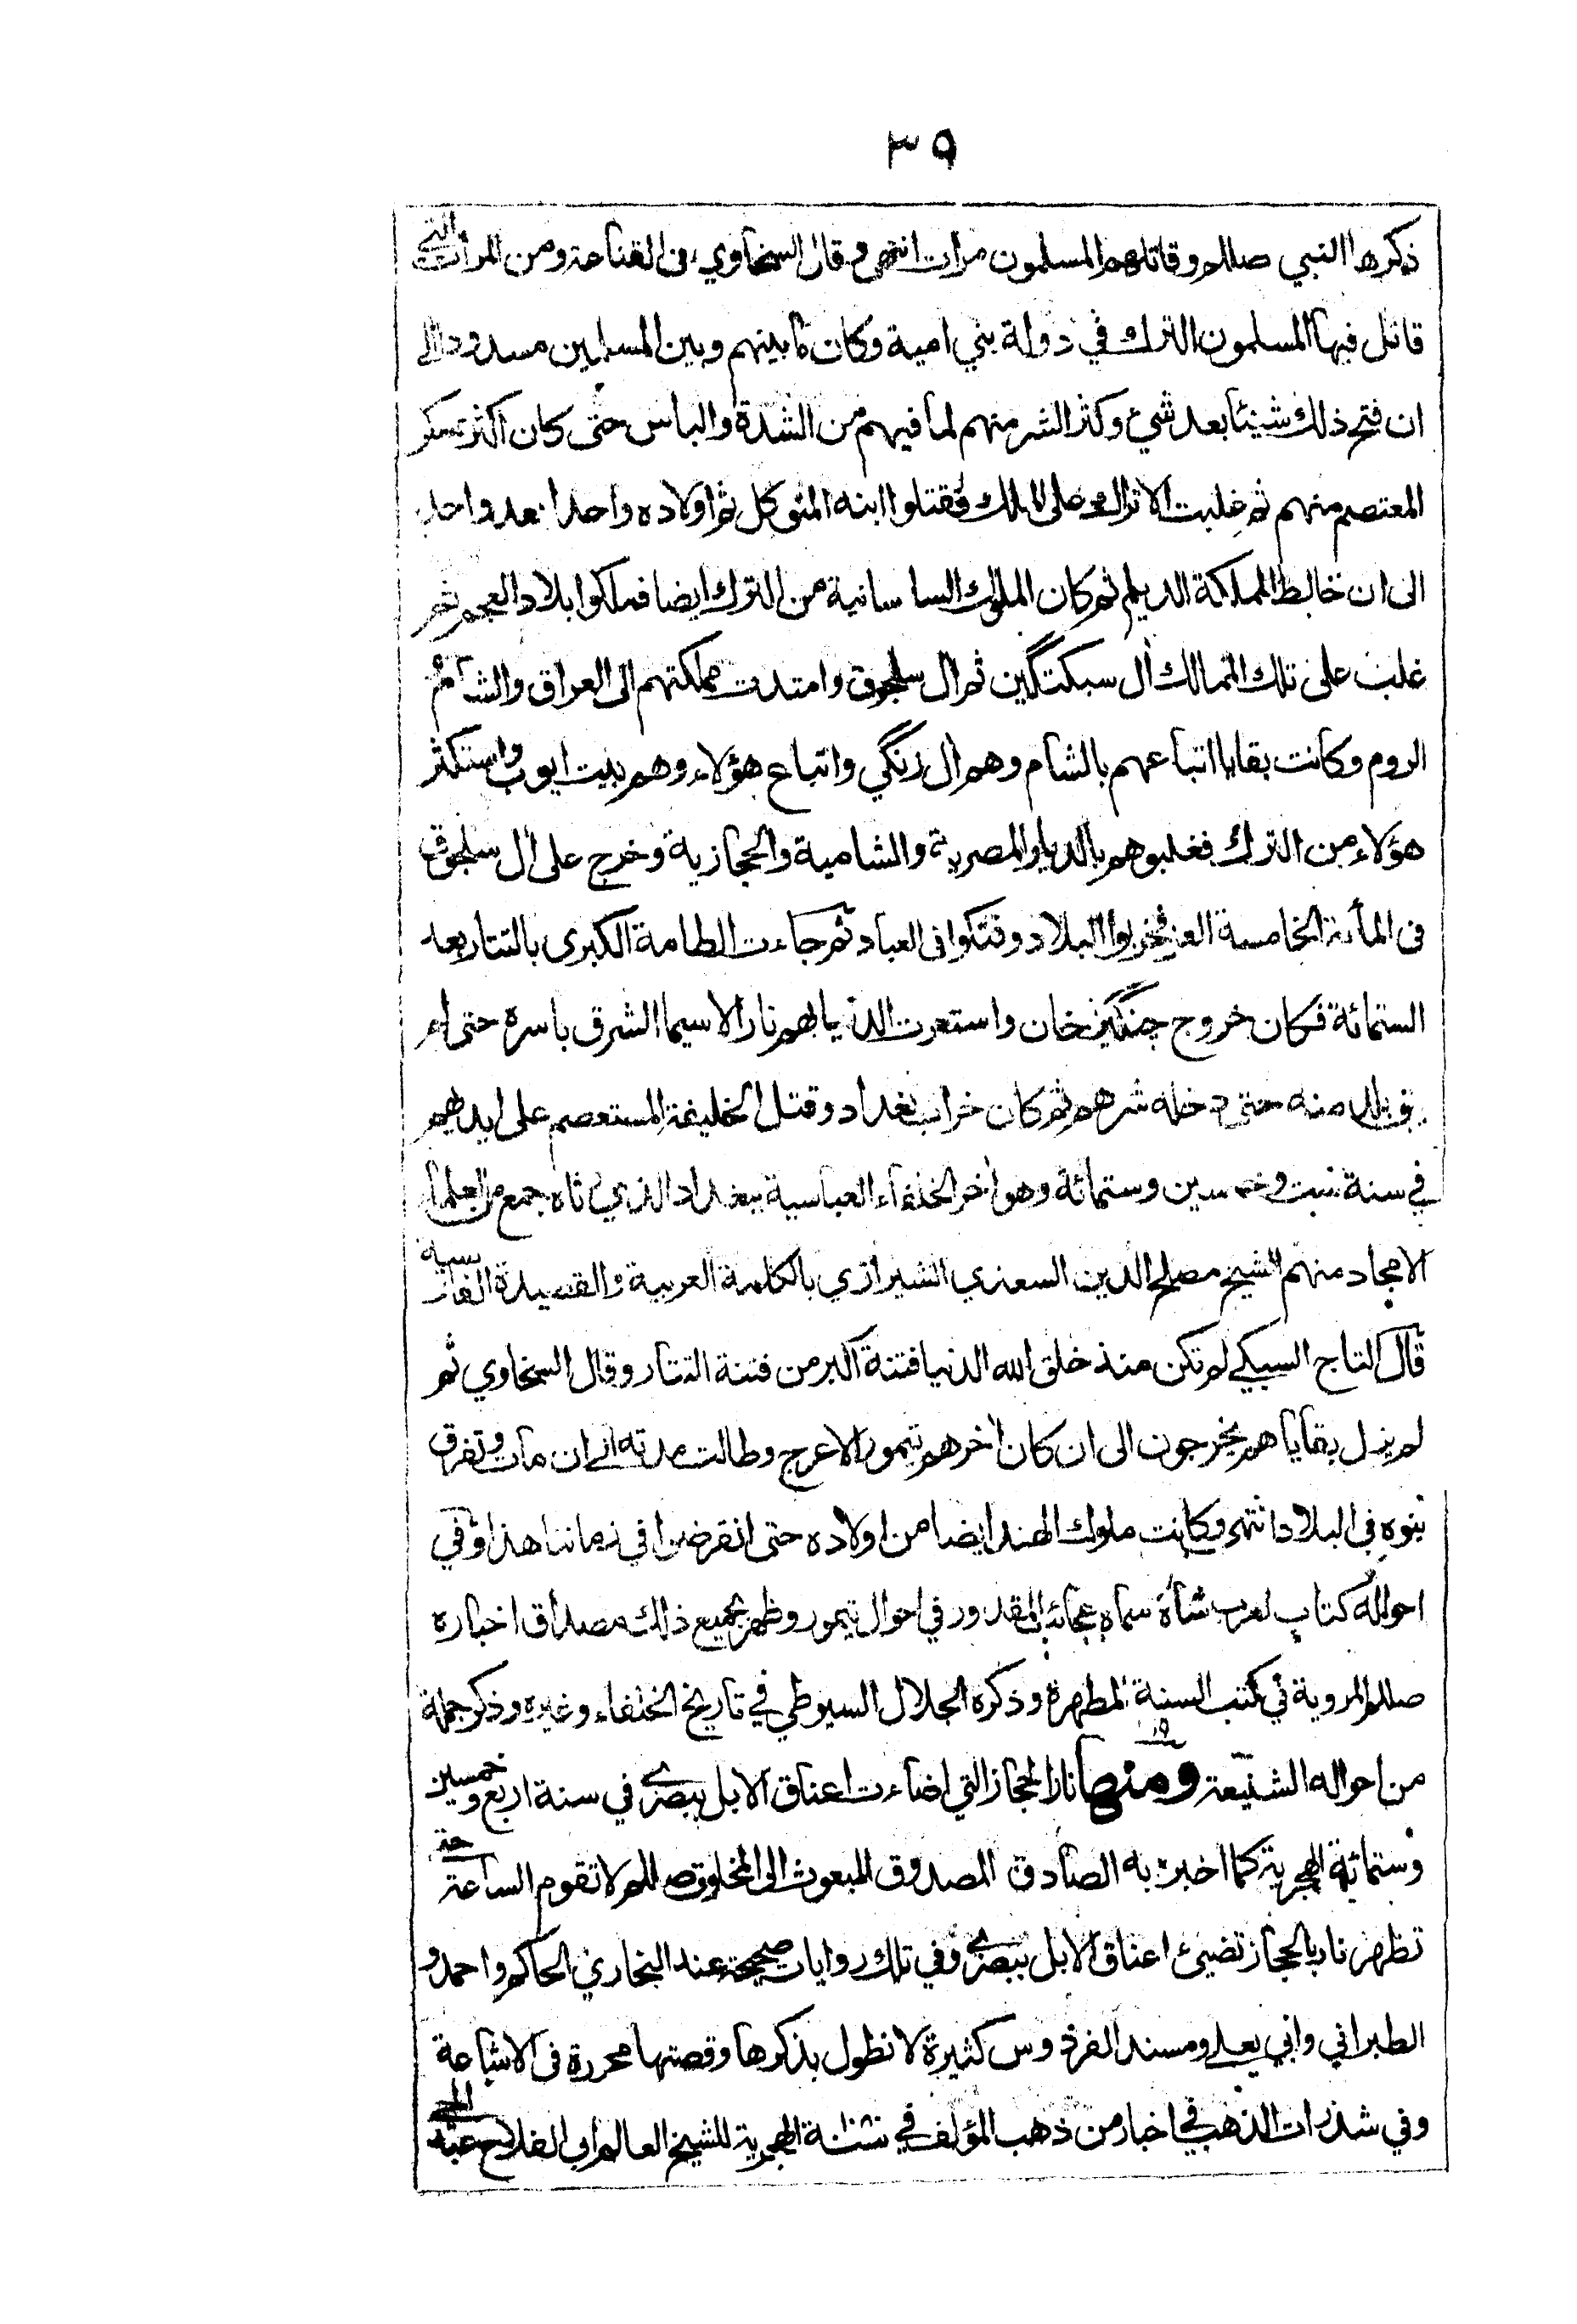 ٣٩
ذكرها النبي صللم وقاتلهم المسلمون مرات انتهى وقال السخاوي في القناعة ومن المرأت التي
قاتل فيها المسلمون الترك في دولة بني امية وكان ما بينهم وبين المسلمين مسدودا الى
ان فتح ذلك شيئا بعد شيء وكثر الشر منهم لما فيهم من الشدة والباس حتى كان اكثر عسكر
المعتصم منهم ثم غلبت الاتراك على الملك فقتلوا ابنه المتوكل ثم اولاده واحدا بعد واحد
الى ان خالط المملكة الديلم ثم كان الملوك السا سانية من الترك ايضا فملكوا بلاد العجم ثم
غلب على تلك الممالك أل سبكتگين ثم ال سلجوق وامتدت مملكتهم الى العراق والشام و
الروم وكانت بقايا اتباعهم بالشام وهم أل زنگي واتباع هؤلاء وهم بيت ايوب واستكثر
هؤلاء من الترك فغلبوهم بالديار المصرية والشامية والحجازية وخرج على أل سلجوق
فى المأئة الخامسة الغز فخربوا البلاد وفتكوا فى العباد ثم جاءت الطامة الكبرى بالتتار بعد
الستمائة فكان خروج چنگيز خان واستعرت الدنيا بهم نارا لاسيما الشرق باسره حتى لم
يبق بلد منه حتى دخله شرهم ثم كان خراب بغداد وقتل الخليفة المستعصم على ايديهم
في سنة ست وخمسين وستمائة وهو أخر الخلفاء العباسية ببغداد الذي رثاه جمع من العلماء
الامجاد منهم الشيخ مصلح الدين السعدي الشيرازي بالكلمة العربية والقصيدة الفارسية
قال التاج السبكي لم تكن منذ خلق الله الدنيا فتنة اكبر من فتنة التتار وقال السخاوي ثم
لم يزل بقايا هم يخرجون الى ان كان أخرهم تيمور الاعرج وطالت مدته الى ان مات وتفرق
بنوه فى البلاد انتهى وكانت ملوك الهند ايضا من اولاده حتى انقرضوا في زماننا هذا وفي
احواله كتاب لعرب شاة سماه عجائب المقدور في احوال تيمور وظهر بجميع ذلك مصداق اخباره
صللم المروية في كتب السنة المطهرة وذكره الجلال السيوطي في تاريخ الخلفاء وغيره وذكر جملة
من احواله الشنيعة ومنها نار الحجاز التي اضاءت اعناق الابل ببصرى في سنة اربع وخمسين
وستمائة الهجرية كما اخبر به الصادق المصدوق المبعوث الى المخلوق صللم لا تقوم الساعة حتى
تظهر نار بالحجاز تضيئ اعناق الابل ببصرى وفي تلك روايات صحيحة عند البخاري الحاكم واحمد و
الطبراني وابي يعلى ومسند الفردوس كثيرة لا نطول بذكرها وقصتها محررة فى الاشاعة
وفي شذرات الذهب في اخبار من ذهب المؤلف في سنة الهجرية للشيخ العالم ابي الفلاح عبد الحي